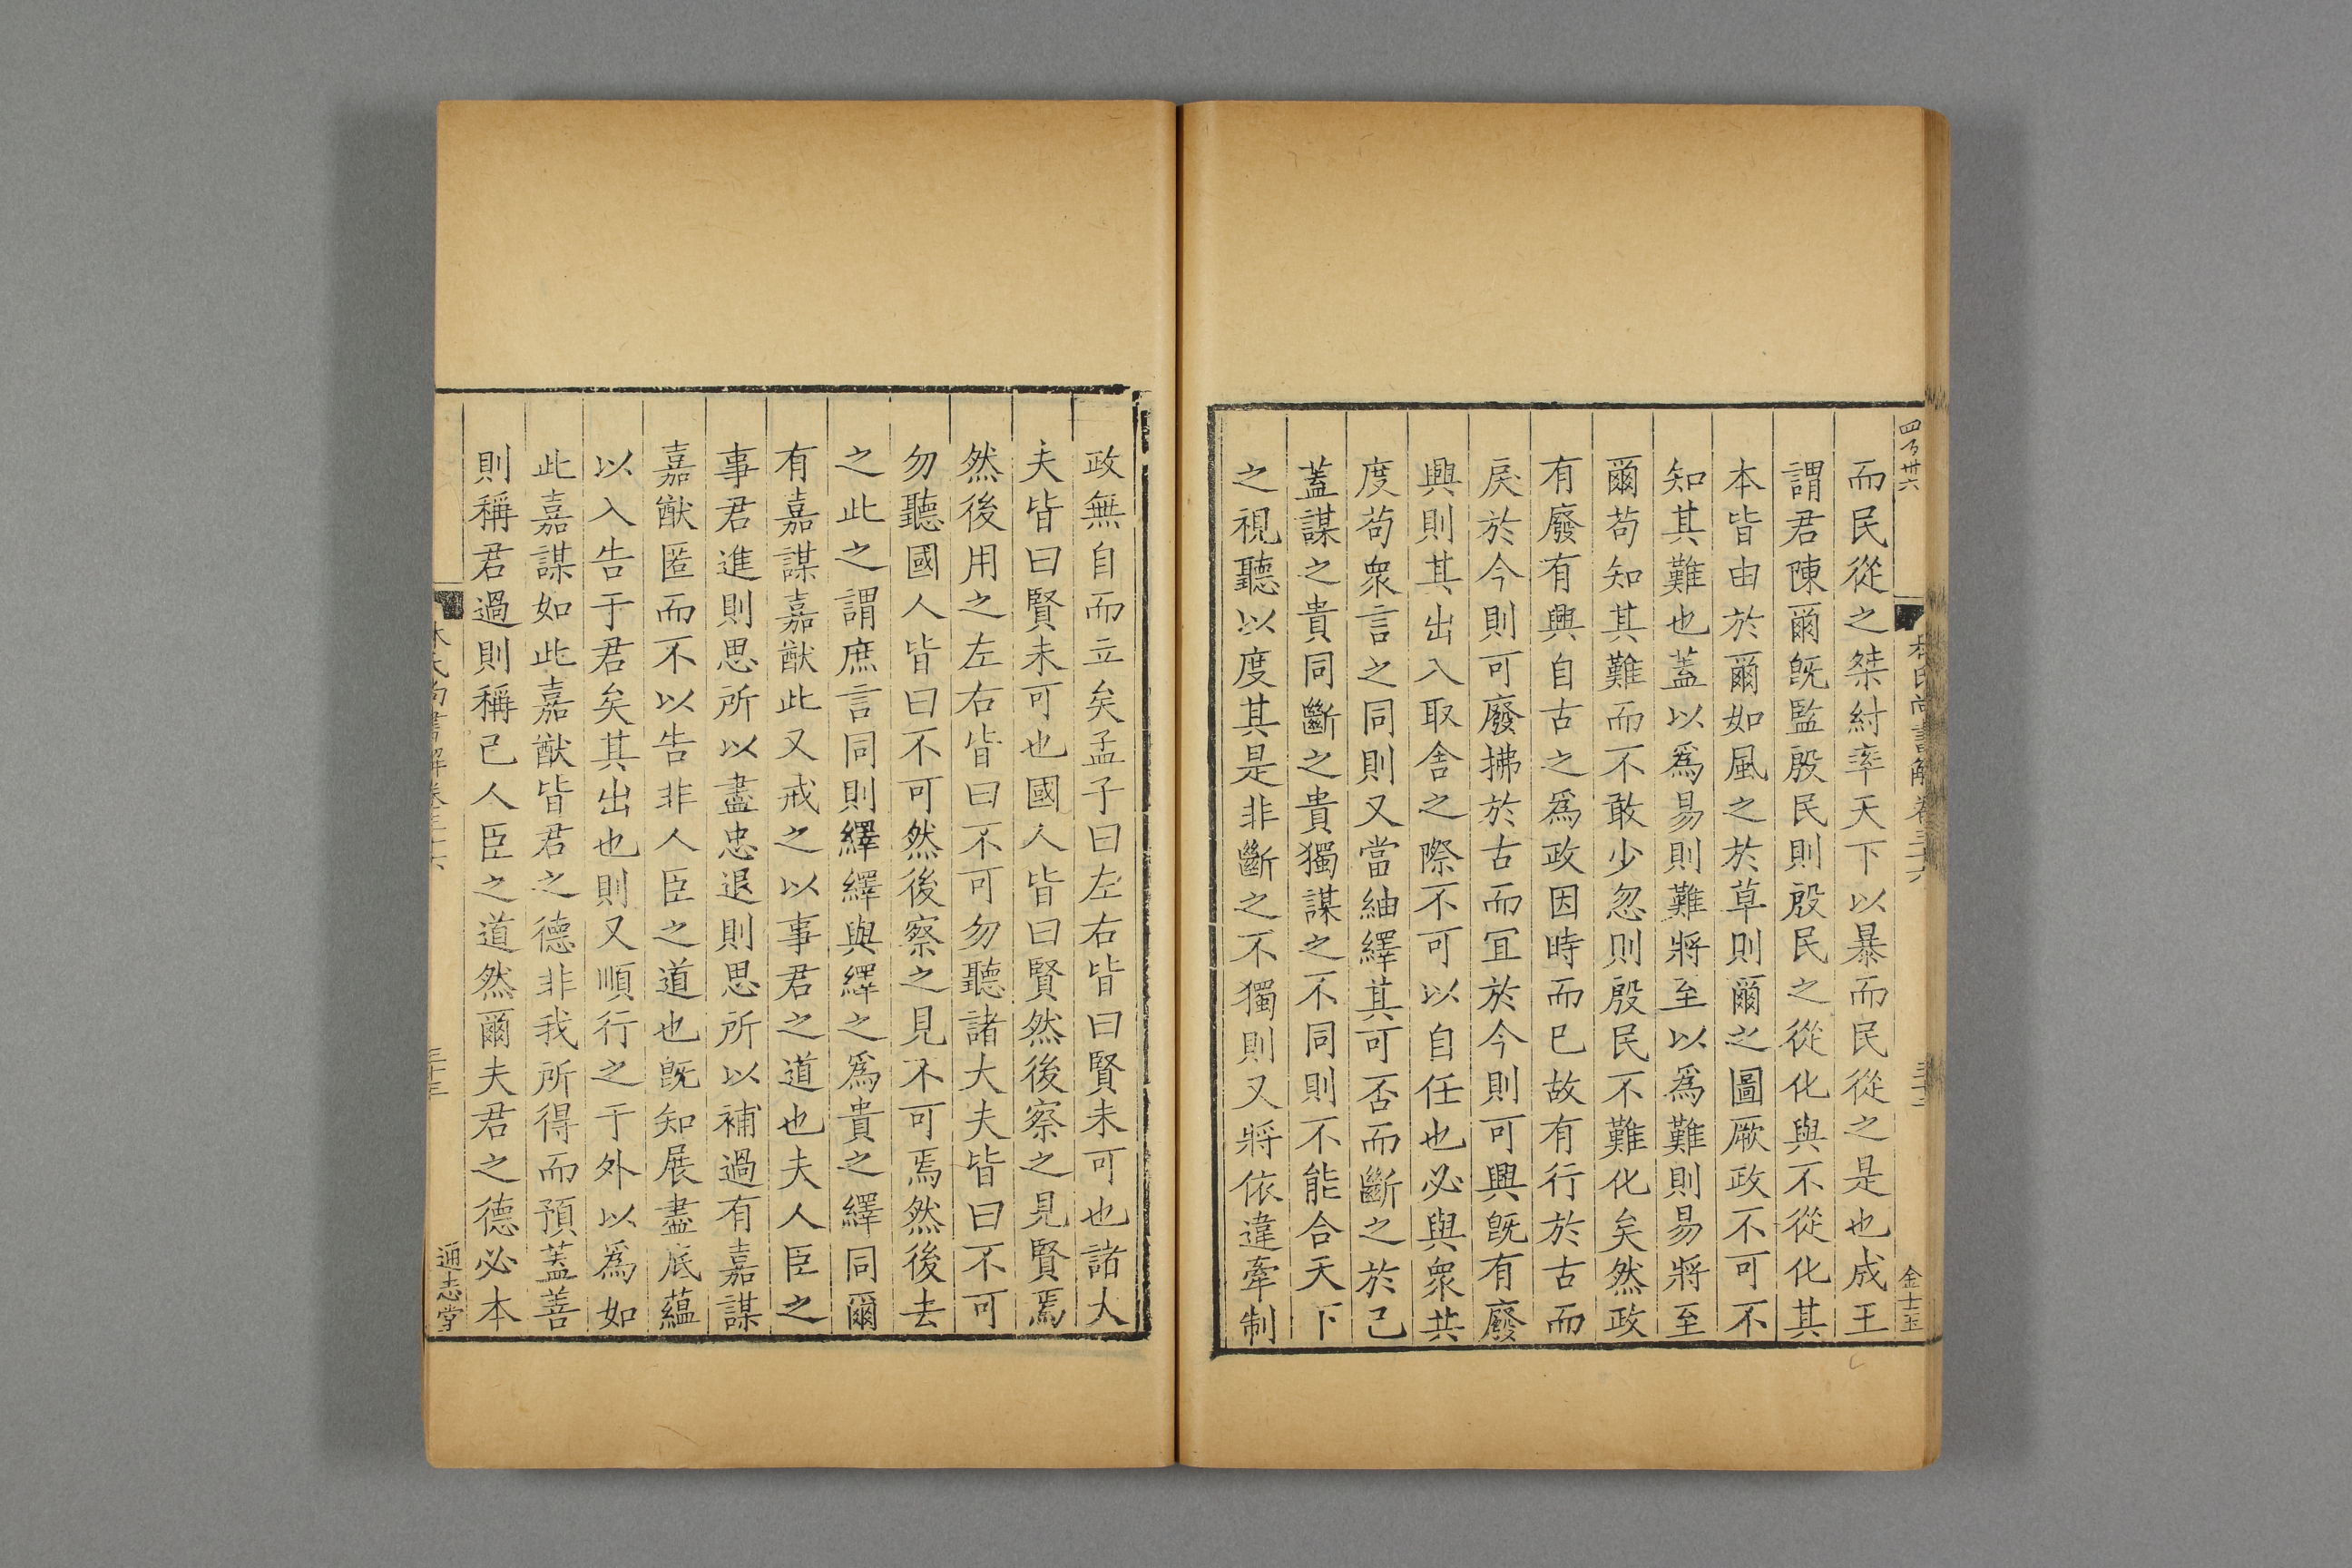 四百卅六
林氏尚書解卷三十六
金士玉
而民從之桀紂率天下以暴而民從之是也成王
謂君陳爾旣監殷民則殷民之從化與不從化其
本皆由於爾如風之於草則爾之圖厥政不可不
知其難也蓋以爲易則難將至以爲難則易將至
爾苟知其難而不敢少忽則殷民不難化矣然政
有廢有興自古之爲政因時而已故有行於古而
戾於今則可廢拂於古而冝於今則可興旣有廢
興則其出入取舎之際不可以自任也必與衆共
度苟衆言之同則又當紬繹其可否而斷之於己
蓋謀之貴同斷之貴獨謀之不同則不能合天下
之視聽以度其是非斷之不獨則又將依違牽制
政無自而立矣孟子曰左右皆曰賢未可也諸大
夫皆曰賢未可也國人皆曰賢然後察之見賢焉
然後用之左右皆曰不可勿聽諸大夫皆曰不可
勿聽國人皆曰不可然後察之見不可焉然後去
之此之謂庶言同則繹繹與繹之爲貴之繹同爾
有嘉謀嘉猷此又戒之以事君之道也夫人臣之
事君進則思所以盡忠退則思所以補過有嘉謀
嘉猷匿而不以告非人臣之道也旣知展盡底蘊
以入告于君矣其出也則又順行之于外以爲如
此嘉謀如此嘉猷皆君之德非我所得而預蓋善
則稱君過則稱己人臣之道然爾夫君之德必本
林氏尚書解卷三十六
三十三
通志堂